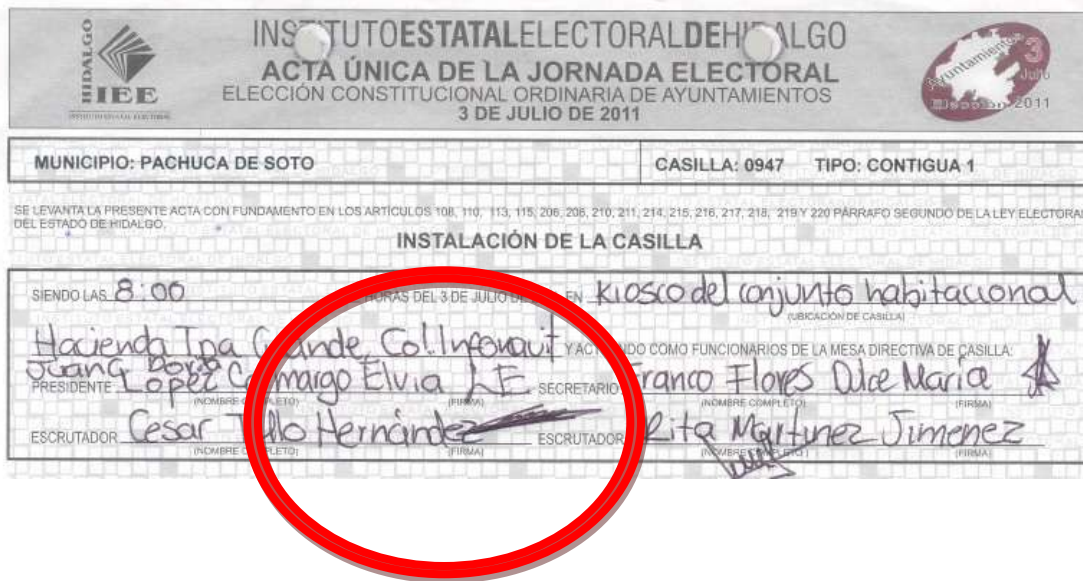 HIDALGO
IEE
INSTITUTO ESTATAL ELECTORAL
INS TUTOESTATALELECTORALDEH ALGO
ACTA ÚNICA DE LA JORNADA ELECTORAL
ELECCIÓN CONSTITUCIONAL ORDINARIA DE AYUNTAMIENTOS
3 DE JULIO DE 2011
Ayuntamientos
3
Julio
Elección 2011
MUNICIPIO: PACHUCA DE SOTO CASILLA: 0947 TIPO: CONTIGUA 1
SE LEVANTA LA PRESENTE ACTA CON FUNDAMENTO EN LOS ARTÍCULOS 108, 110, 113, 115, 206, 208, 210, 211, 214, 215, 216, 217, 218, 219 Y 220 PÁRRAFO SEGUNDO DE LA LEY ELECTORAL
DEL ESTADO DE HIDALGO.
INSTALACIÓN DE LA CASILLA
SIENDO LAS 8:00 HORAS DEL 3 DE JULIO DE EN Kiosco del conjunto habitacional
(UBICACIÓN DE CASILLA)
Hacienda Col. Infonavit Y ACTUANDO COMO FUNCIONARIOS DE LA MESA DIRECTIVA DE CASILLA:
Juana
PRESIDENTE Lopez Camargo Elvia SECRETARIO Franco Flores Dulce María
(NOMBRE COMPLETO) (FIRMA) (NOMBRE COMPLETO) (FIRMA)
ESCRUTADOR Cesar Tello Hernández ESCRUTADOR Rita Martinez Jimenez
(NOMBRE COMPLETO) (FIRMA) (NOMBRE COMPLETO) (FIRMA)